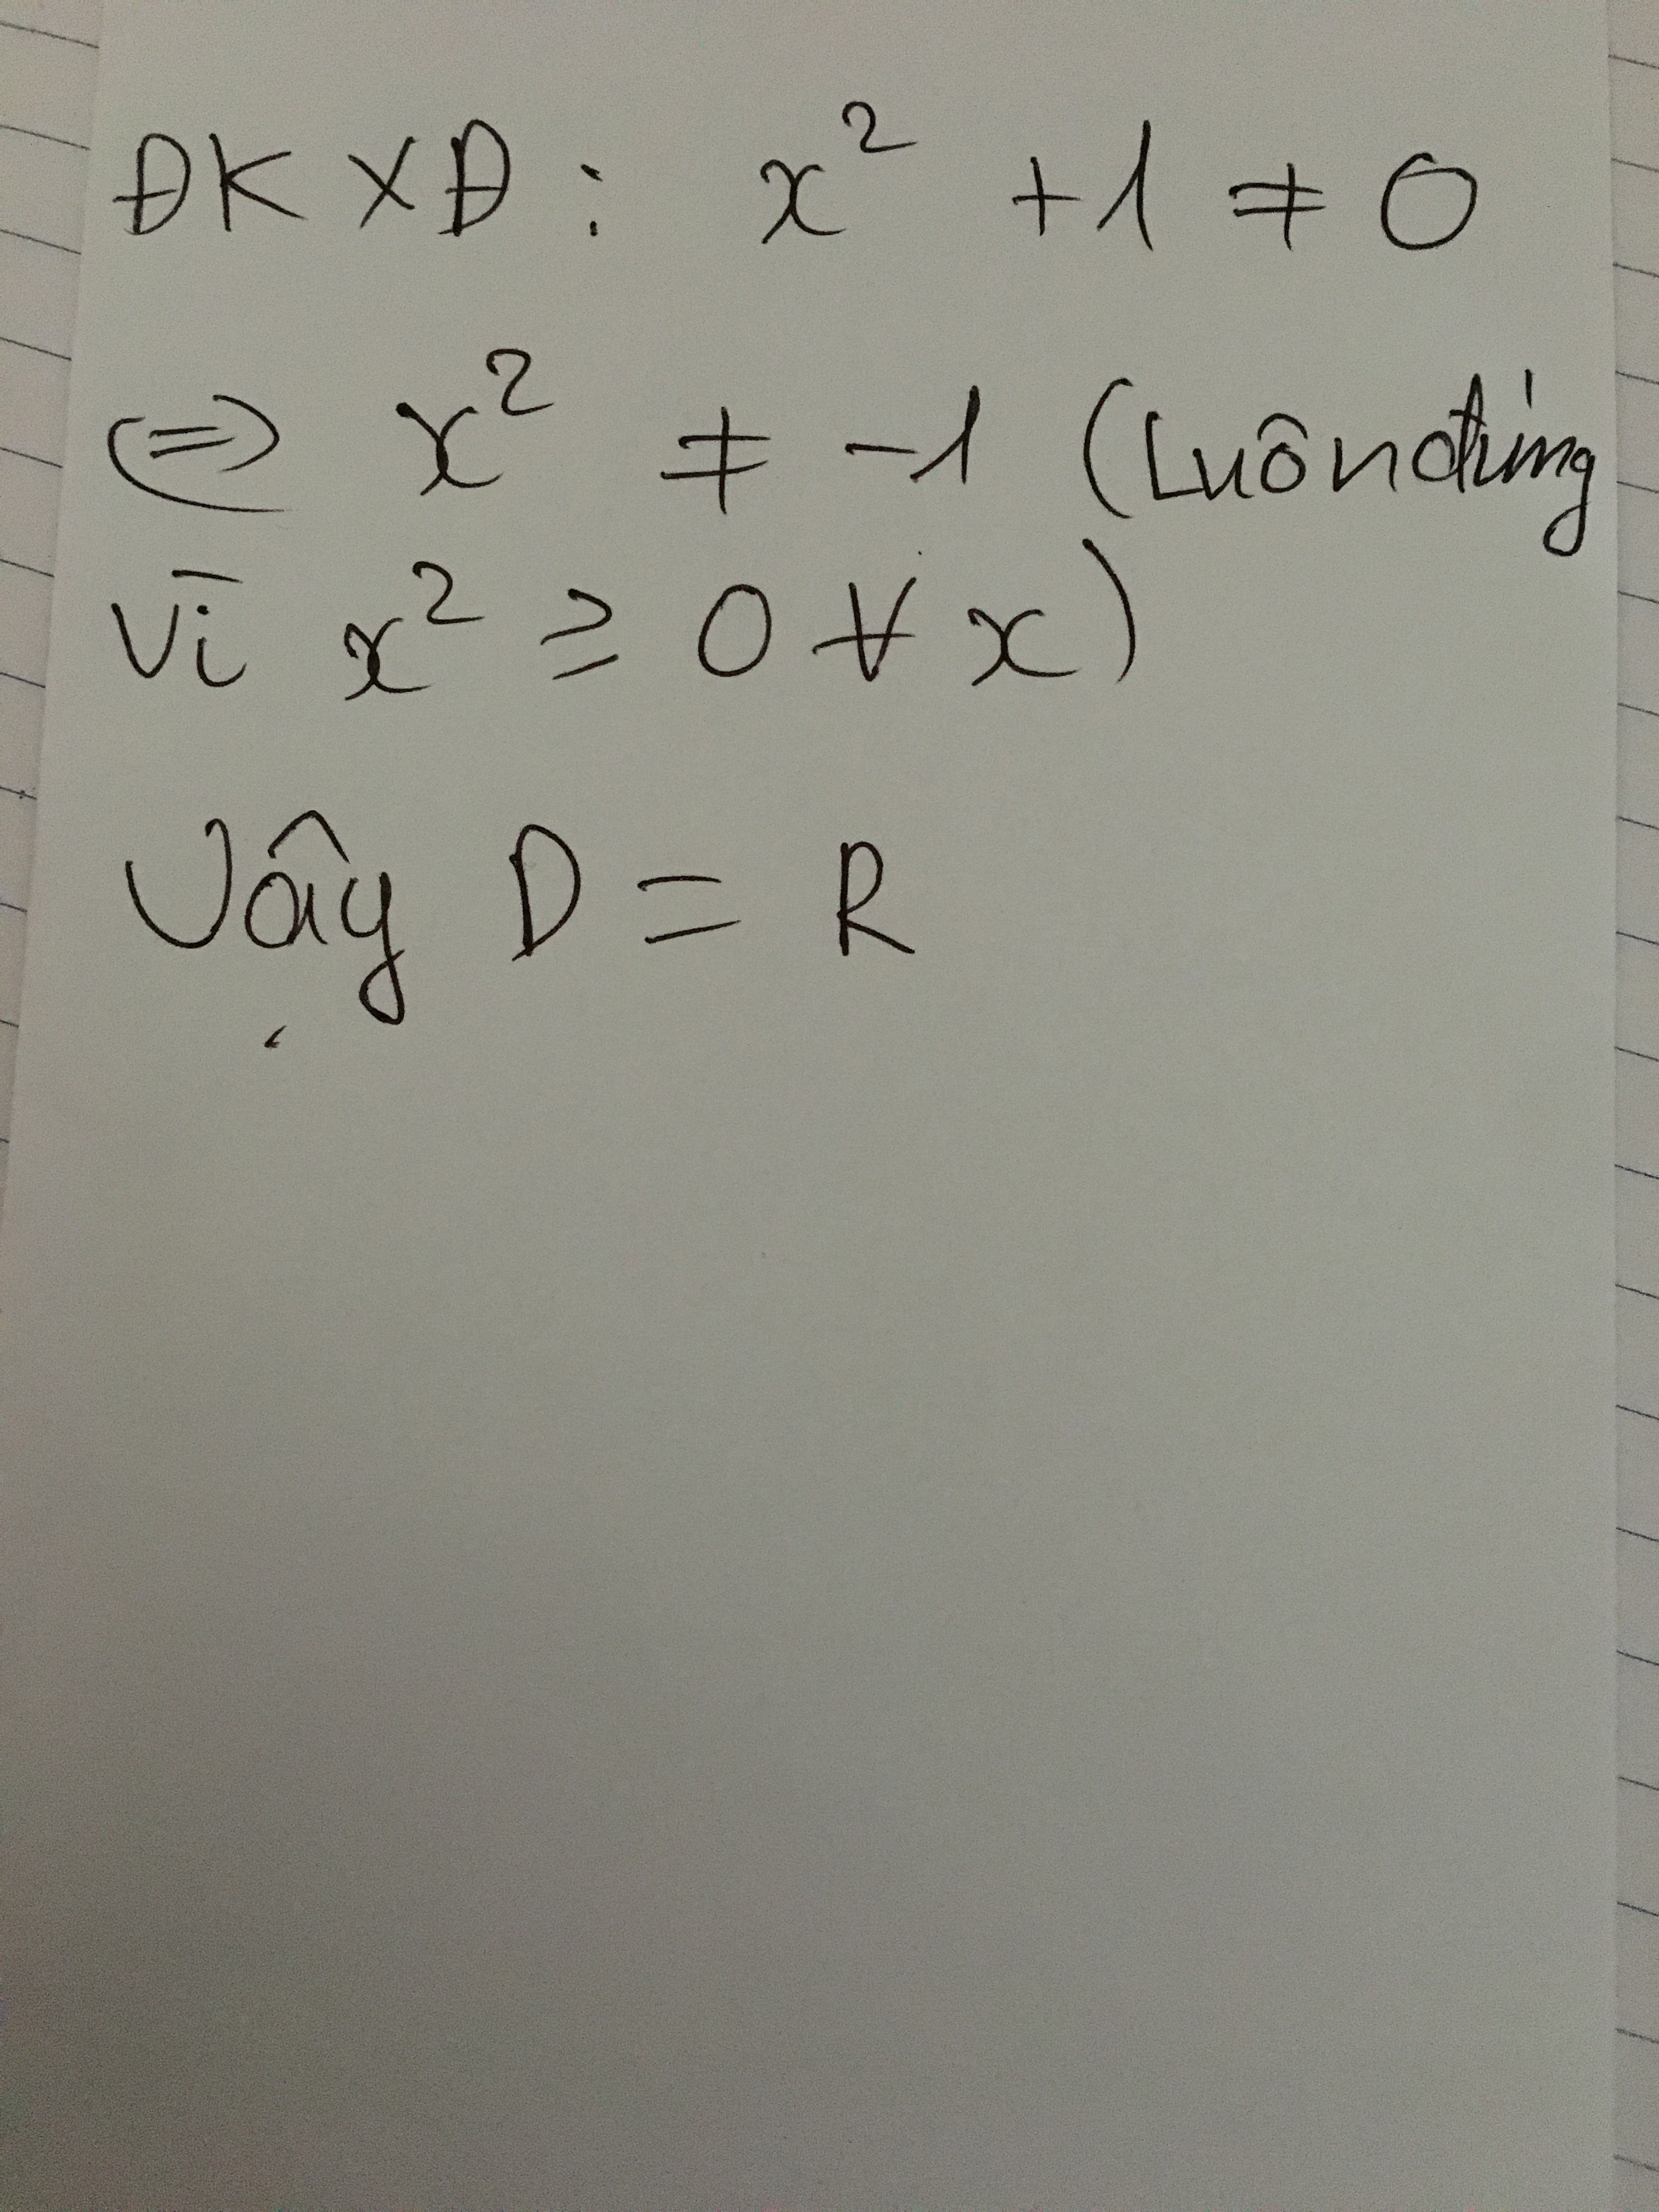 ĐKXĐ: x² + 1 ≠ 0
⇔ x² ≠ -1 (Luôn đúng
vì x² ≥ 0 ∀ x)
Vậy D = R